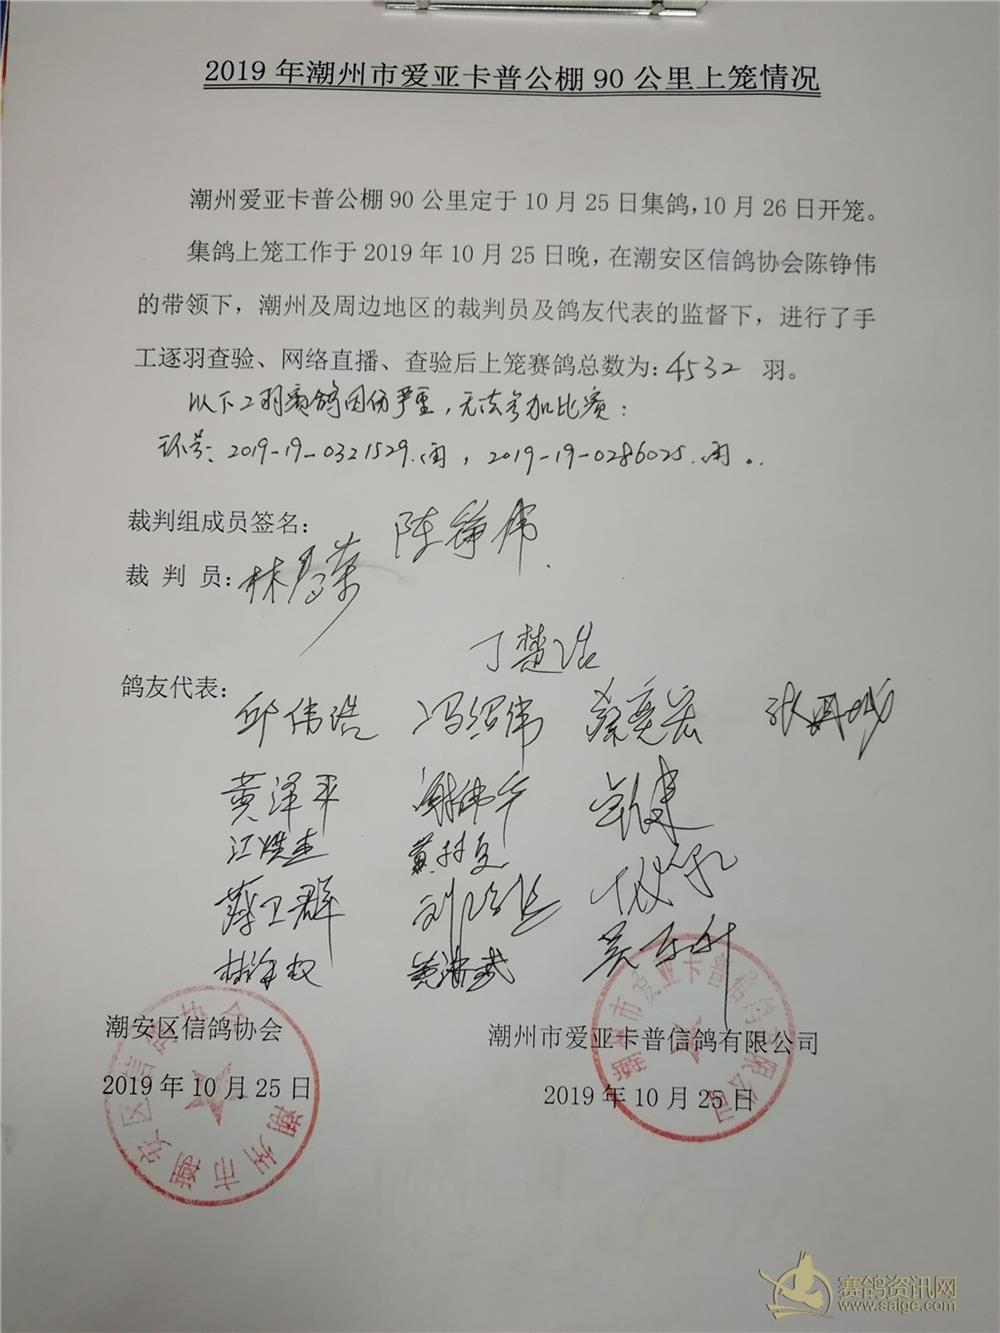 2019年潮州市爱亚卡普公棚90公里上笼情况
潮州爱亚卡普公棚90公里定于10月25日集鸽,10月26日开笼。
集鸽上笼工作于2019年10月25日晚,在潮安区信鸽协会陈铮伟
的带领下，潮州及周边地区的裁判员及鸽友代表的监督下，进行了手
工逐羽查验、网络直播、查验后上笼赛鸽总数为:4532 羽。
以下2羽赛鸽因伤严重,无法参加比赛:
环号:2019-19-0321529.雨,2019-19-0286025.雨。
裁判组成员签名: 陈铮伟
裁 判 员:
丁楚浩
鸽友代表:
邱伟浩 冯绍伟 蔡奕宏
黄泽平 谢伟华
薛卫群
潮安区信鸽协会
2019年10月25日
潮州市爱亚卡普信鸽有限公司
2019年10月25日
潮州市潮安区信鸽协会
潮州市爱亚卡普信鸽有限公司
赛鸽资讯网
www.saige.com